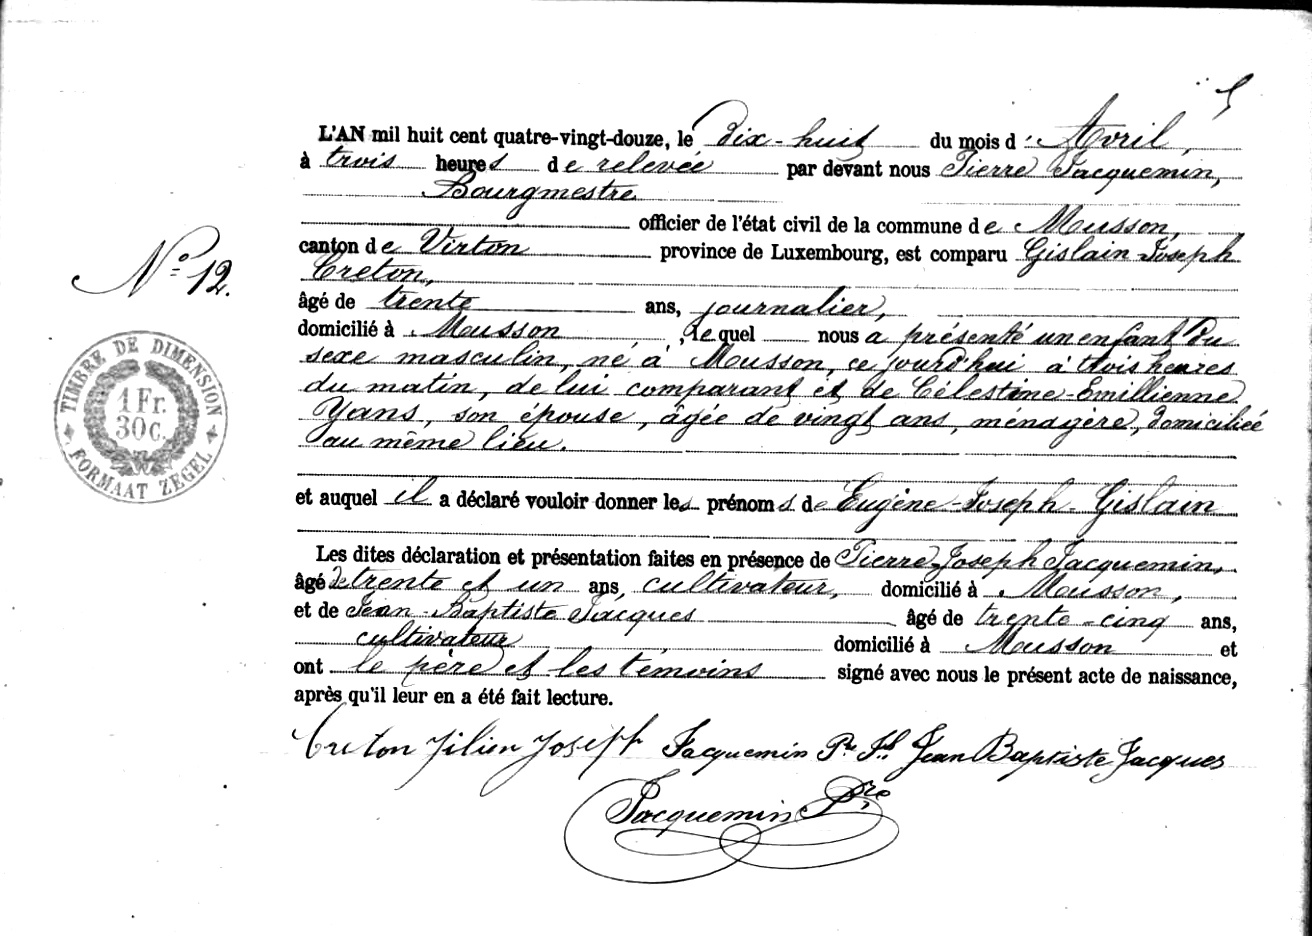 5
L'AN mil huit cent quatre-vingt-douze, le dix-huit du mois d'Avril,
à trois heures de relevée par devant nous Pierre Jacquemin,
Bourgmestre
officier de l'état civil de la commune de Musson,
canton de Virton province de Luxembourg, est comparu Gislain-Joseph
Creton,
âgé de trente ans, journalier,
domicilié à Musson, lequel nous a présenté un enfant du
sexe masculin, né à Musson, ce jourd'hui à trois heures
du matin, de lui comparant et de Célestine-Emillienne
Yans, son épouse, âgée de vingt ans, ménagère, domiciliée
au même lieu.
et auquel il a déclaré vouloir donner les prénoms de Eugène-Joseph-Gislain
Les dites déclaration et présentation faites en présence de Pierre-Joseph Jacquemin,
âgé de trente et un ans, cultivateur, domicilié à Musson,
et de Jean-Baptiste Jacques âgé de trente-cinq ans,
cultivateur domicilié à Musson et
ont le père et les témoins signé avec nous le présent acte de naissance,
après qu'il leur en a été fait lecture.
Creton Jilien Joseph Jacquemin Pre Jh Jean Baptiste Jacques
Jacquemin Pre
No 12.
TIMBRE DE DIMENSION
1 Fr.
30c.
FORMAAT ZEGEL